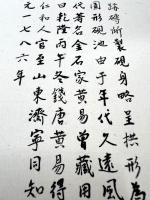 磚所製硯身略呈拱形為
圓形硯池由于年代久遠風
代著名金石家黃易曾藏用
曰乾隆丙午冬錢唐黃易得
仁和人官至山東濟寧同知
元一七八六年